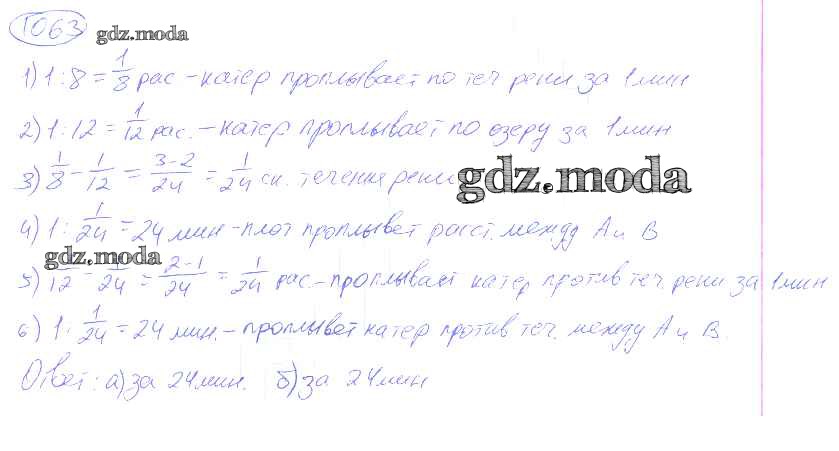 1063 gdz.moda
1) 1 : 8 = 1/8 рас – катер проплывает по теч реки за 1 мин
2) 1 : 12 = 1/12 рас. – катер проплывает по озеру за 1 мин
3) 1/8 - 1/12 = (3-2)/24 = 1/24 ск. течения реки gdz.moda
4) 1 : 1/24 = 24 мин – плот проплывет расст. между А и В
gdz.moda
5) 1/12 - 1/24 = (2-1)/24 = 1/24 рас. – проплывает катер против теч. реки за 1 мин
6) 1 : 1/24 = 24 мин. – проплывет катер против теч. между А и В.
Ответ: а) за 24 мин. б) за 24 мин